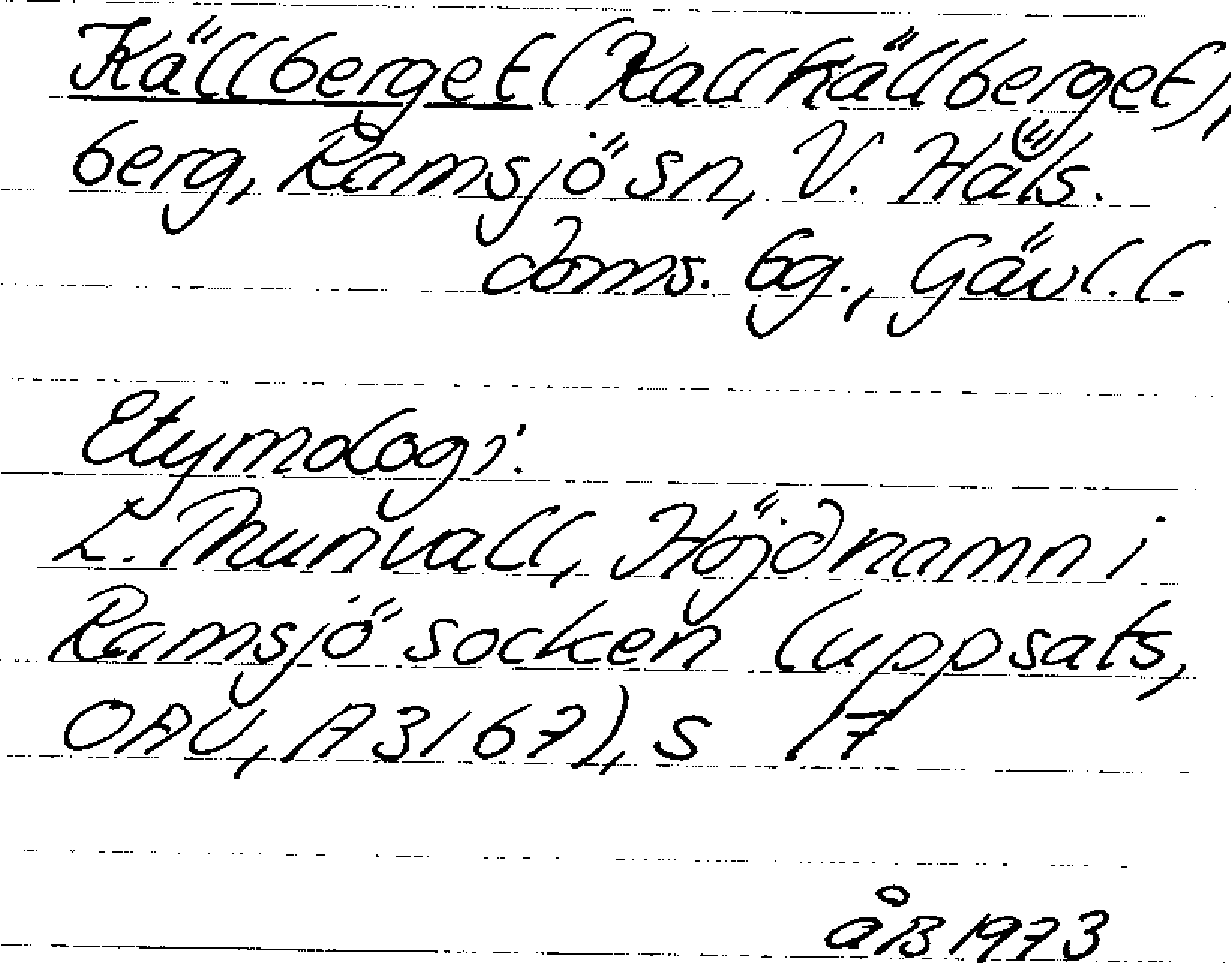 Källberget (Kallkällberget),
berg, Ramsjö sn, V. Häls.
doms. bg., Gävl. l.
Etymologi:
L. Thunvall, Höjdnamn i
Ramsjö socken (uppsats,
OAU, A3167), s 17
åB 1973